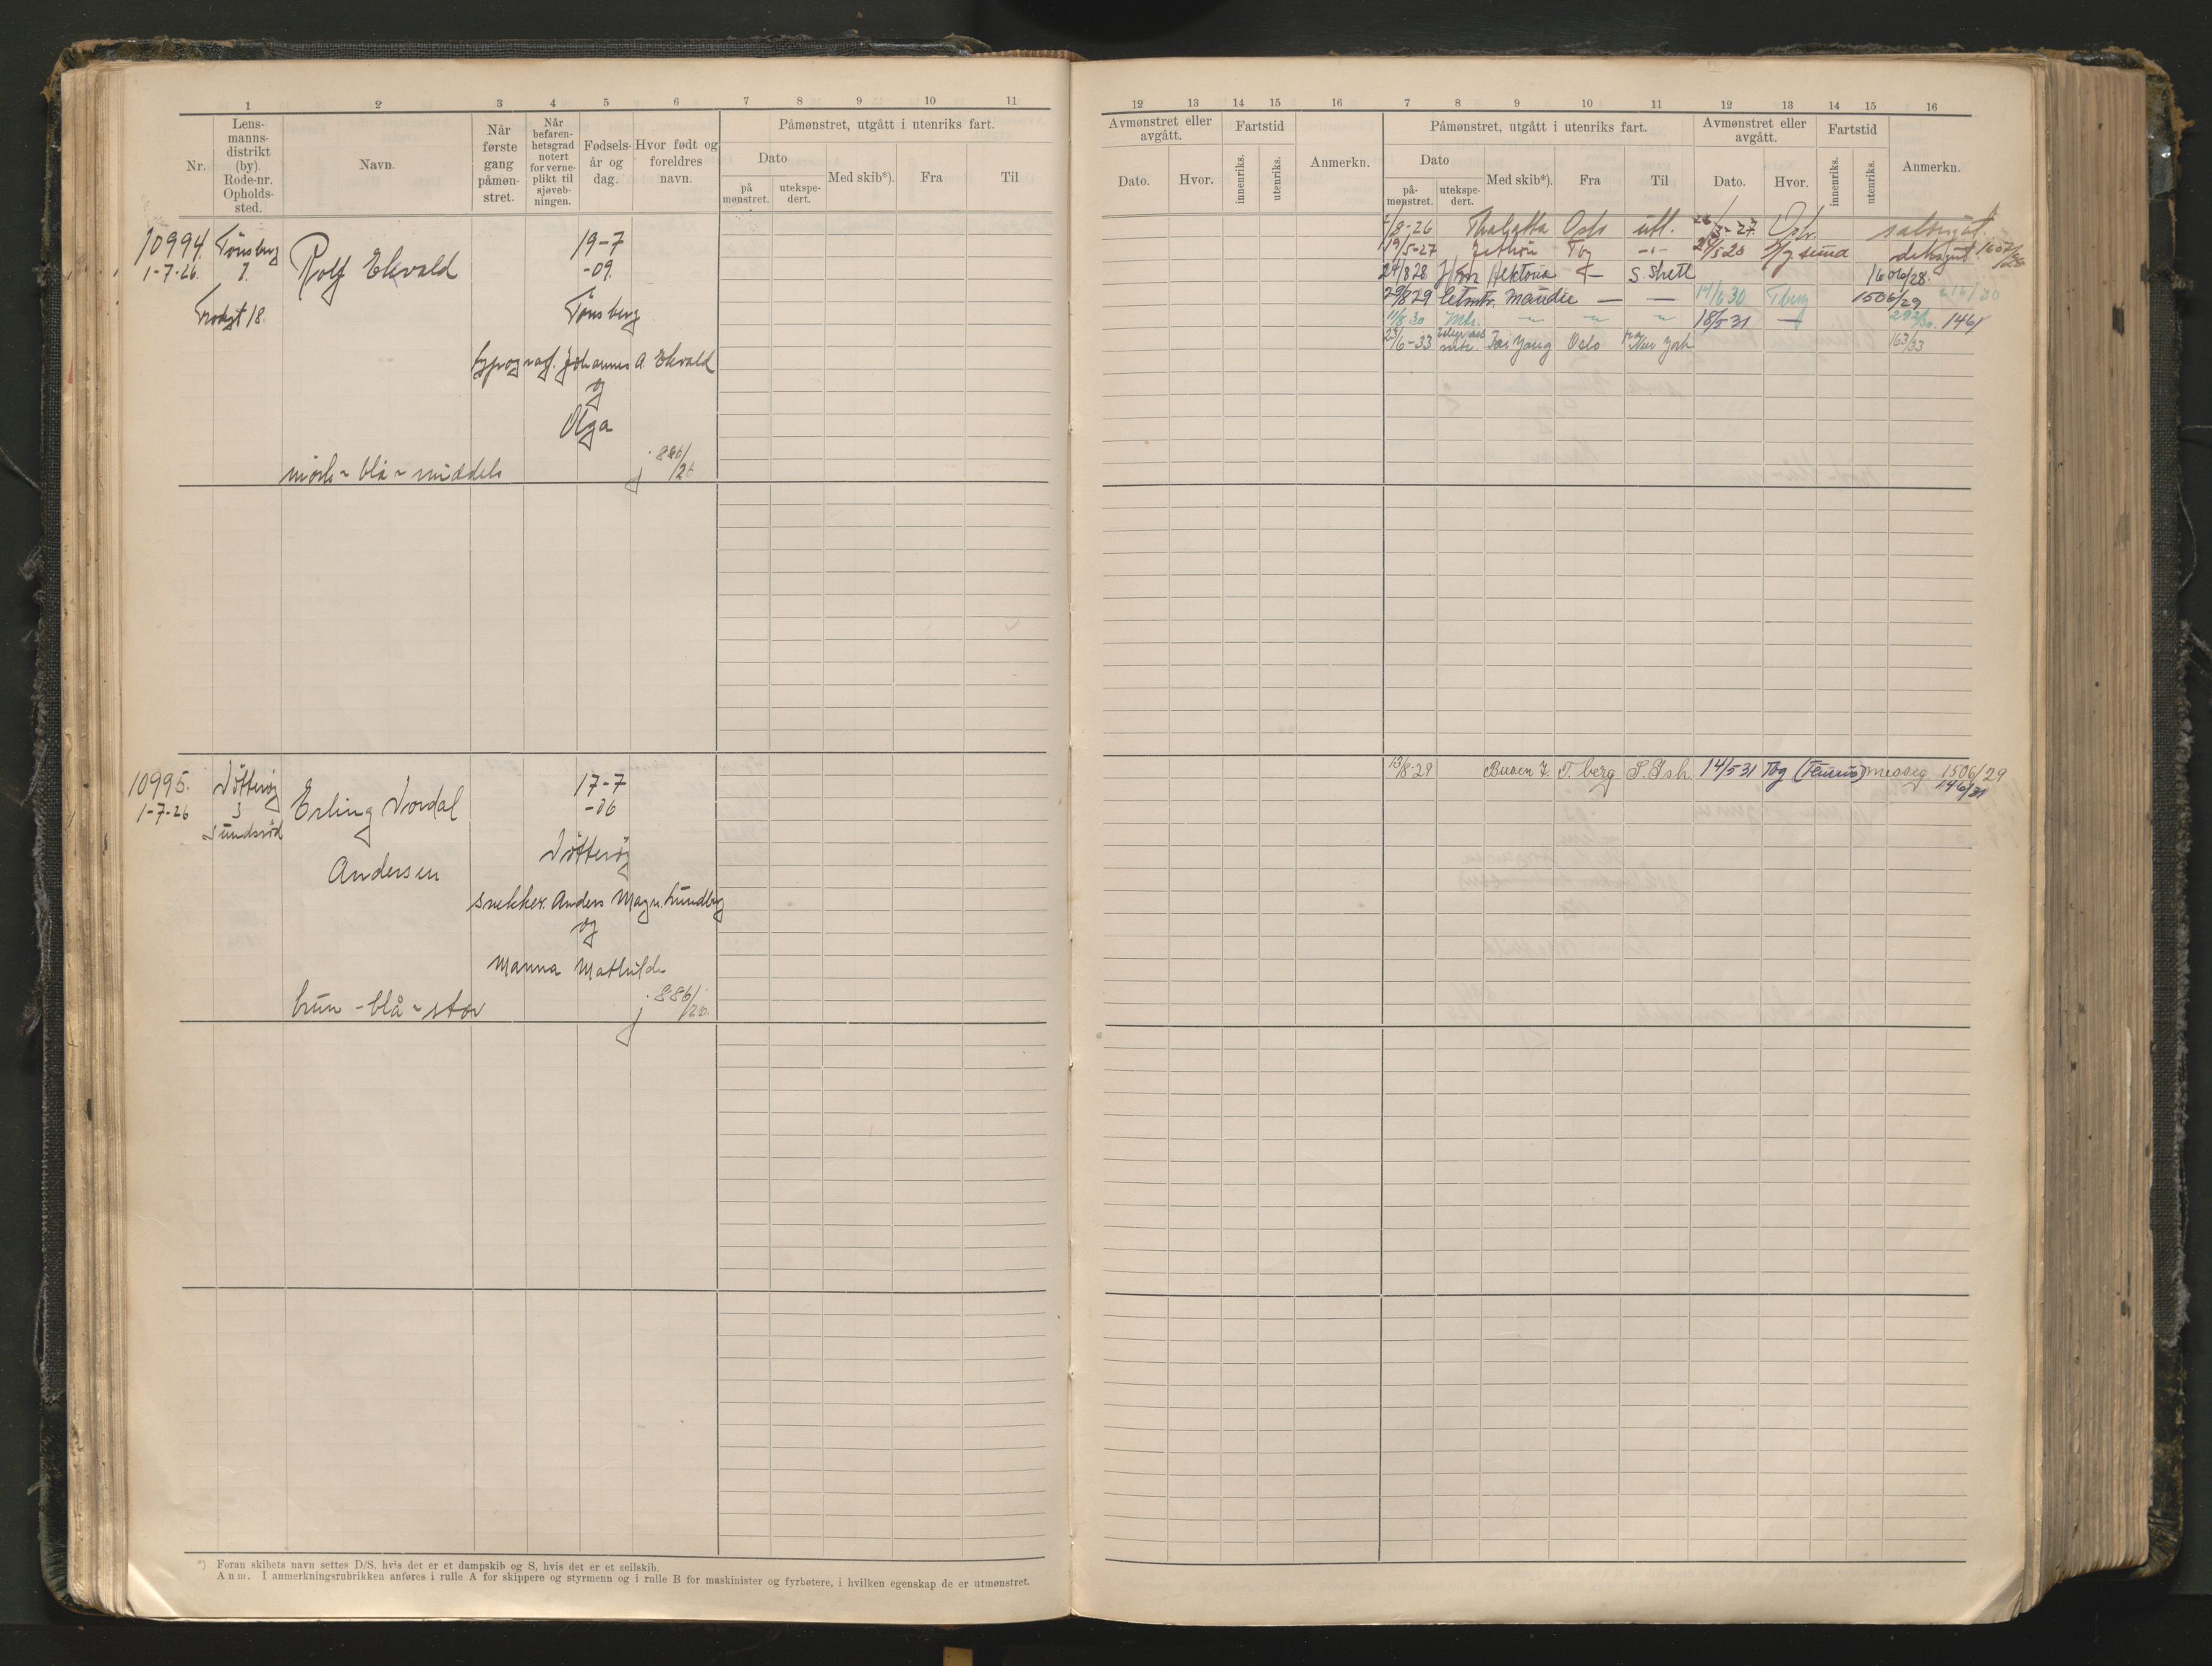 1 2 3 4 5 6 7 8 9 10 11
Nr.
Lens-
manns-
distrikt
(by).
Rode-nr.
Opholds-
sted.
Navn.
Når
første
gang
påmøn-
stret.
Når
befaren-
hetsgrad
notert
for verne-
plikt til
sjøveb-
ningen.
Fødsels-
år og
dag.
Hvor født og
foreldres
navn.
Påmønstret, utgått i utenriks fart.
Dato
på
mønstret.
utekspe-
dert.
Med skib*).
Fra
Til
10994. Tønsberg
1-7-26. 7.
Rolf Ekvald
19-7
-09.
Tønsberg
typograf. Johannes A. Ekvald
og
Olga
mørk ~ blå ~ middels
j. 886/26
10995. Nøtterøy
1-7-26 3
Sundsrød
Erling Nordal
Andersen
17-7
-06
Nøtterøy
snekker. Anders Magn. Lundby
og
Manna Mathilde
brun - blå ~ stor
j. 886/26.
*) Foran skibets navn settes D/S, hvis det er et dampskib og S, hvis det er et seilskib.
Anm. I anmerkningsrubrikken anføres i rulle A for skippere og styrmenn og i rulle B for maskinister og fyrbøtere, i hvilken egenskap de er utmønstret.
12 13 14 15 16 7 8 9 10 11 12 13 14 15 16
Avmønstret eller
avgått.
Dato.
Hvor.
Fartstid
innenriks.
utenriks.
Anmerkn.
Påmønstret, utgått i utenriks fart.
Dato
på-
mønstret.
utekspe-
dert.
Med skib*).
Fra
Til
Avmønstret eller
avgått.
Dato.
Hvor.
Fartstid
innenriks.
utenriks.
Anmerkn.
/8-26 Thalatta Oslo utl. 26/3-27. Oslo
19/5-27 Tbg -"- 24/5 28 dekksgut 1607/28
24/8 28 Hektoria S. Shetl 1606/28.
29/8 29 Maudie — — 14/6 30 Tberg 1506/29 216/30
11/8 30 Mtr. ~ ~ ~ 18/5 31 — 292/30. 146/
23/6-33 mtr. Tai Yang Oslo New York 163/33
13/8-29 Busen 7. T.berg S. Ish. 14/5 31 Tbg messeg 1506/29
146/31